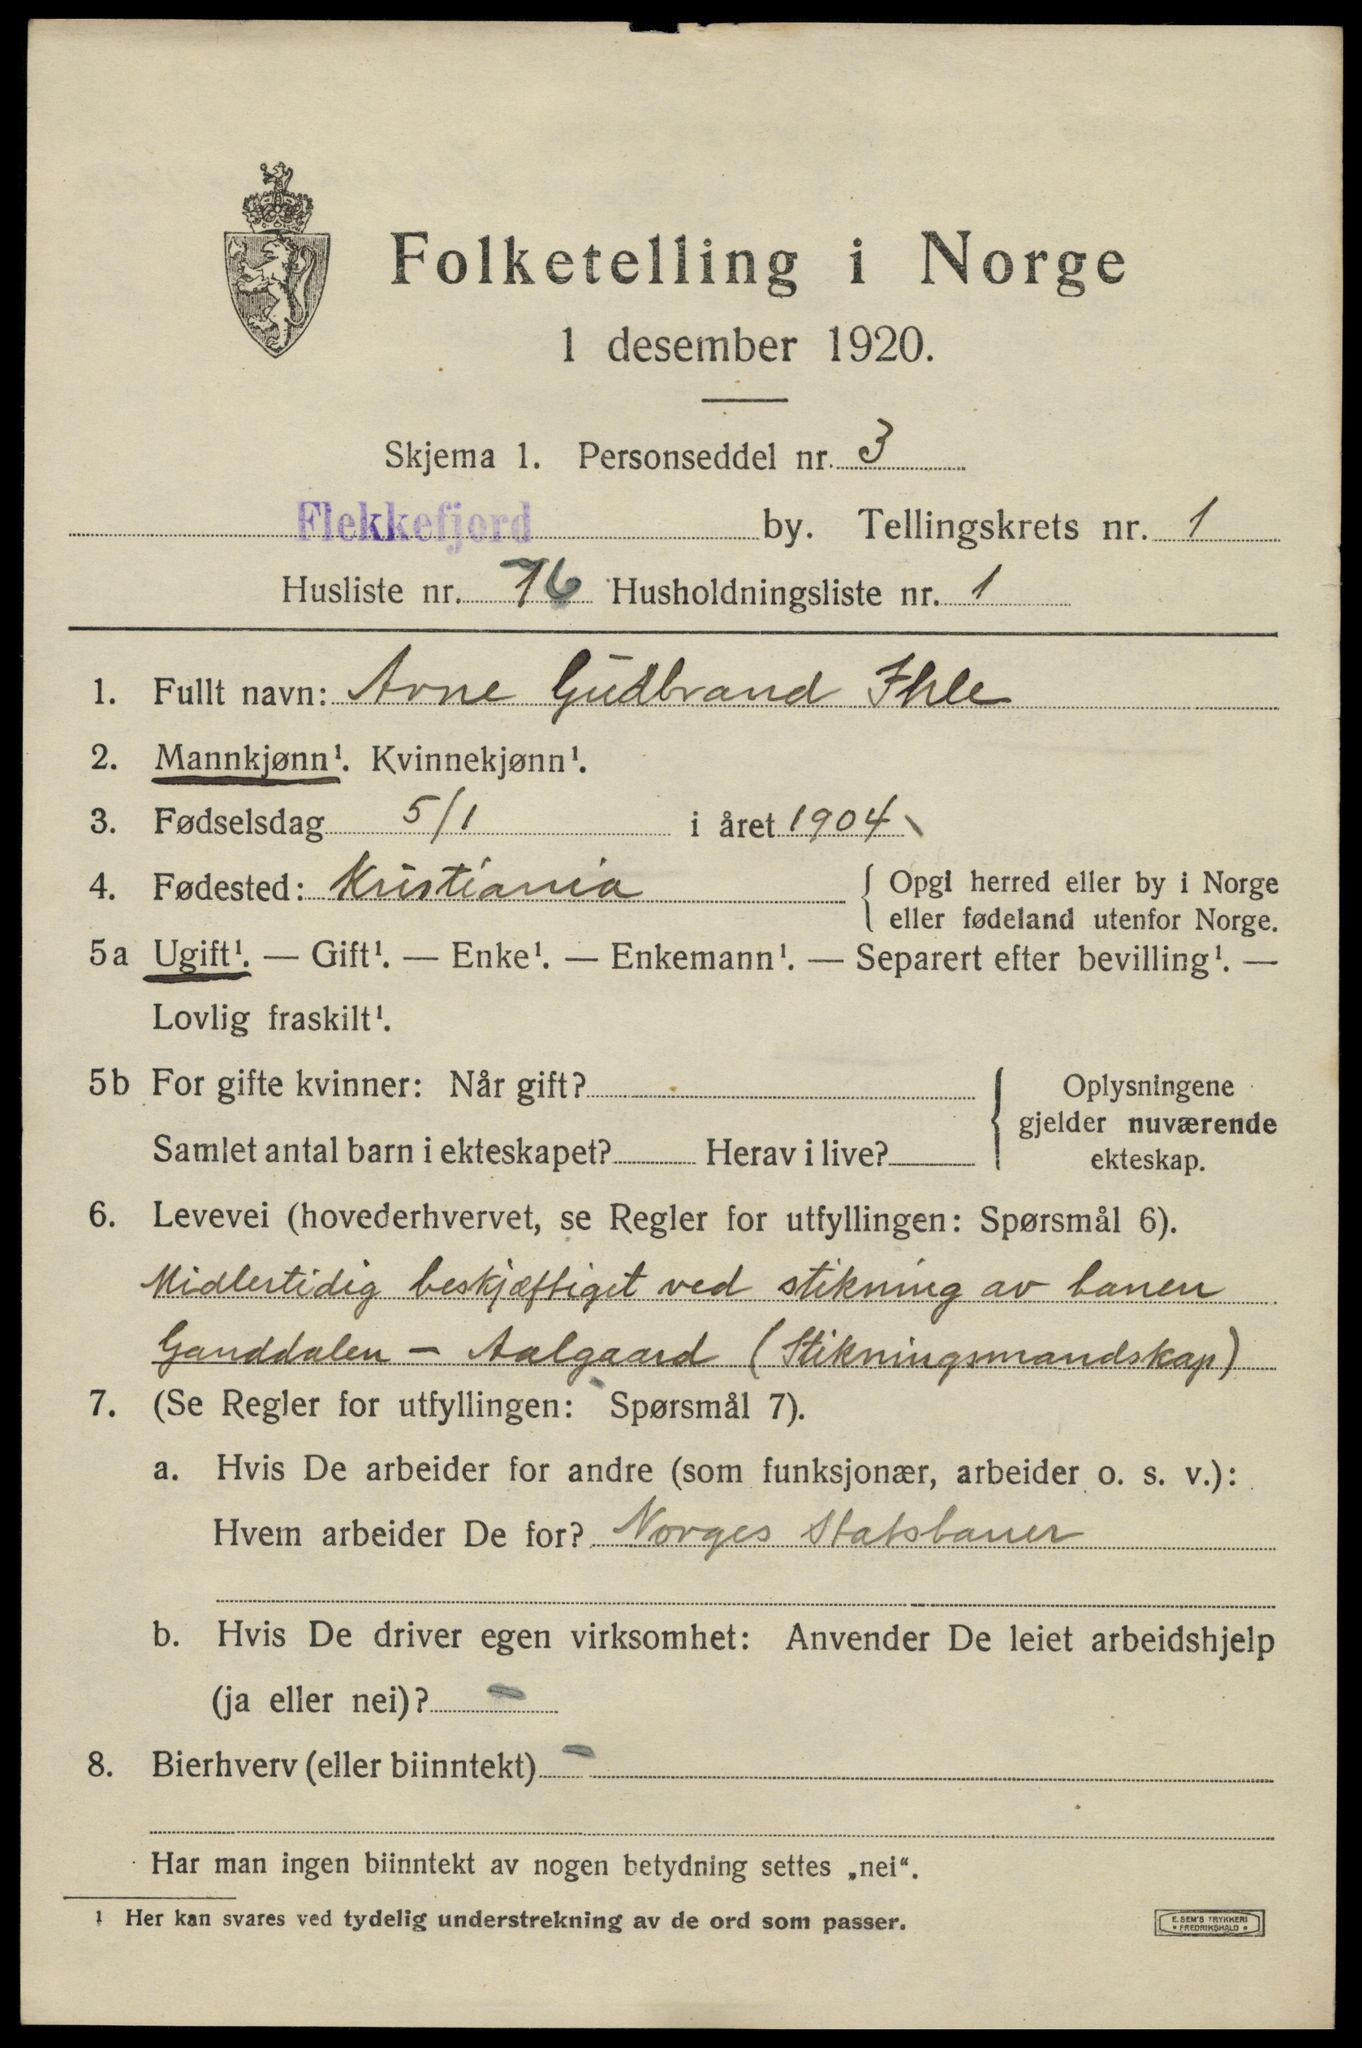 Folketelling i Norge
1 desember 1920.
Skjema 1. Personseddel nr. 3
Flekkefjord by. Tellingskrets nr. 1
Husliste nr. 76 Husholdningsliste nr. 1
1. Fullt navn: Arne Gudbrand Ihle
2. Mannkjønn¹. Kvinnekjønn¹.
3. Fødselsdag 5/1 i året 1904
4. Fødested: Kristiania { Opgi herred eller by i Norge
eller fødeland utenfor Norge.
5a Ugift¹. — Gift¹. — Enke¹. — Enkemann¹. — Separert efter bevilling¹. —
Lovlig fraskilt¹.
5b For gifte kvinner: Når gift? { Oplysningene
gjelder nuværende
Samlet antal barn i ekteskapet? Herav i live? ekteskap.
6. Levevei (hovederhvervet, se Regler for utfyllingen: Spørsmål 6).
Midlertidig beskjæftiget ved stikning av banen
Ganddalen – Aalgaard (Stikningsmandskap)
7. (Se Regler for utfyllingen: Spørsmål 7).
a. Hvis De arbeider for andre (som funksjonær, arbeider o. s. v.):
Hvem arbeider De for? Norges Statsbaner
b. Hvis De driver egen virksomhet: Anvender De leiet arbeidshjelp
(ja eller nei)? –
8. Bierhverv (eller biinntekt) –
Har man ingen biinntekt av nogen betydning settes „nei“.
1 Her kan svares ved tydelig understrekning av de ord som passer.
E. SEM'S TRYKKERI
* FREDRIKSHALD *